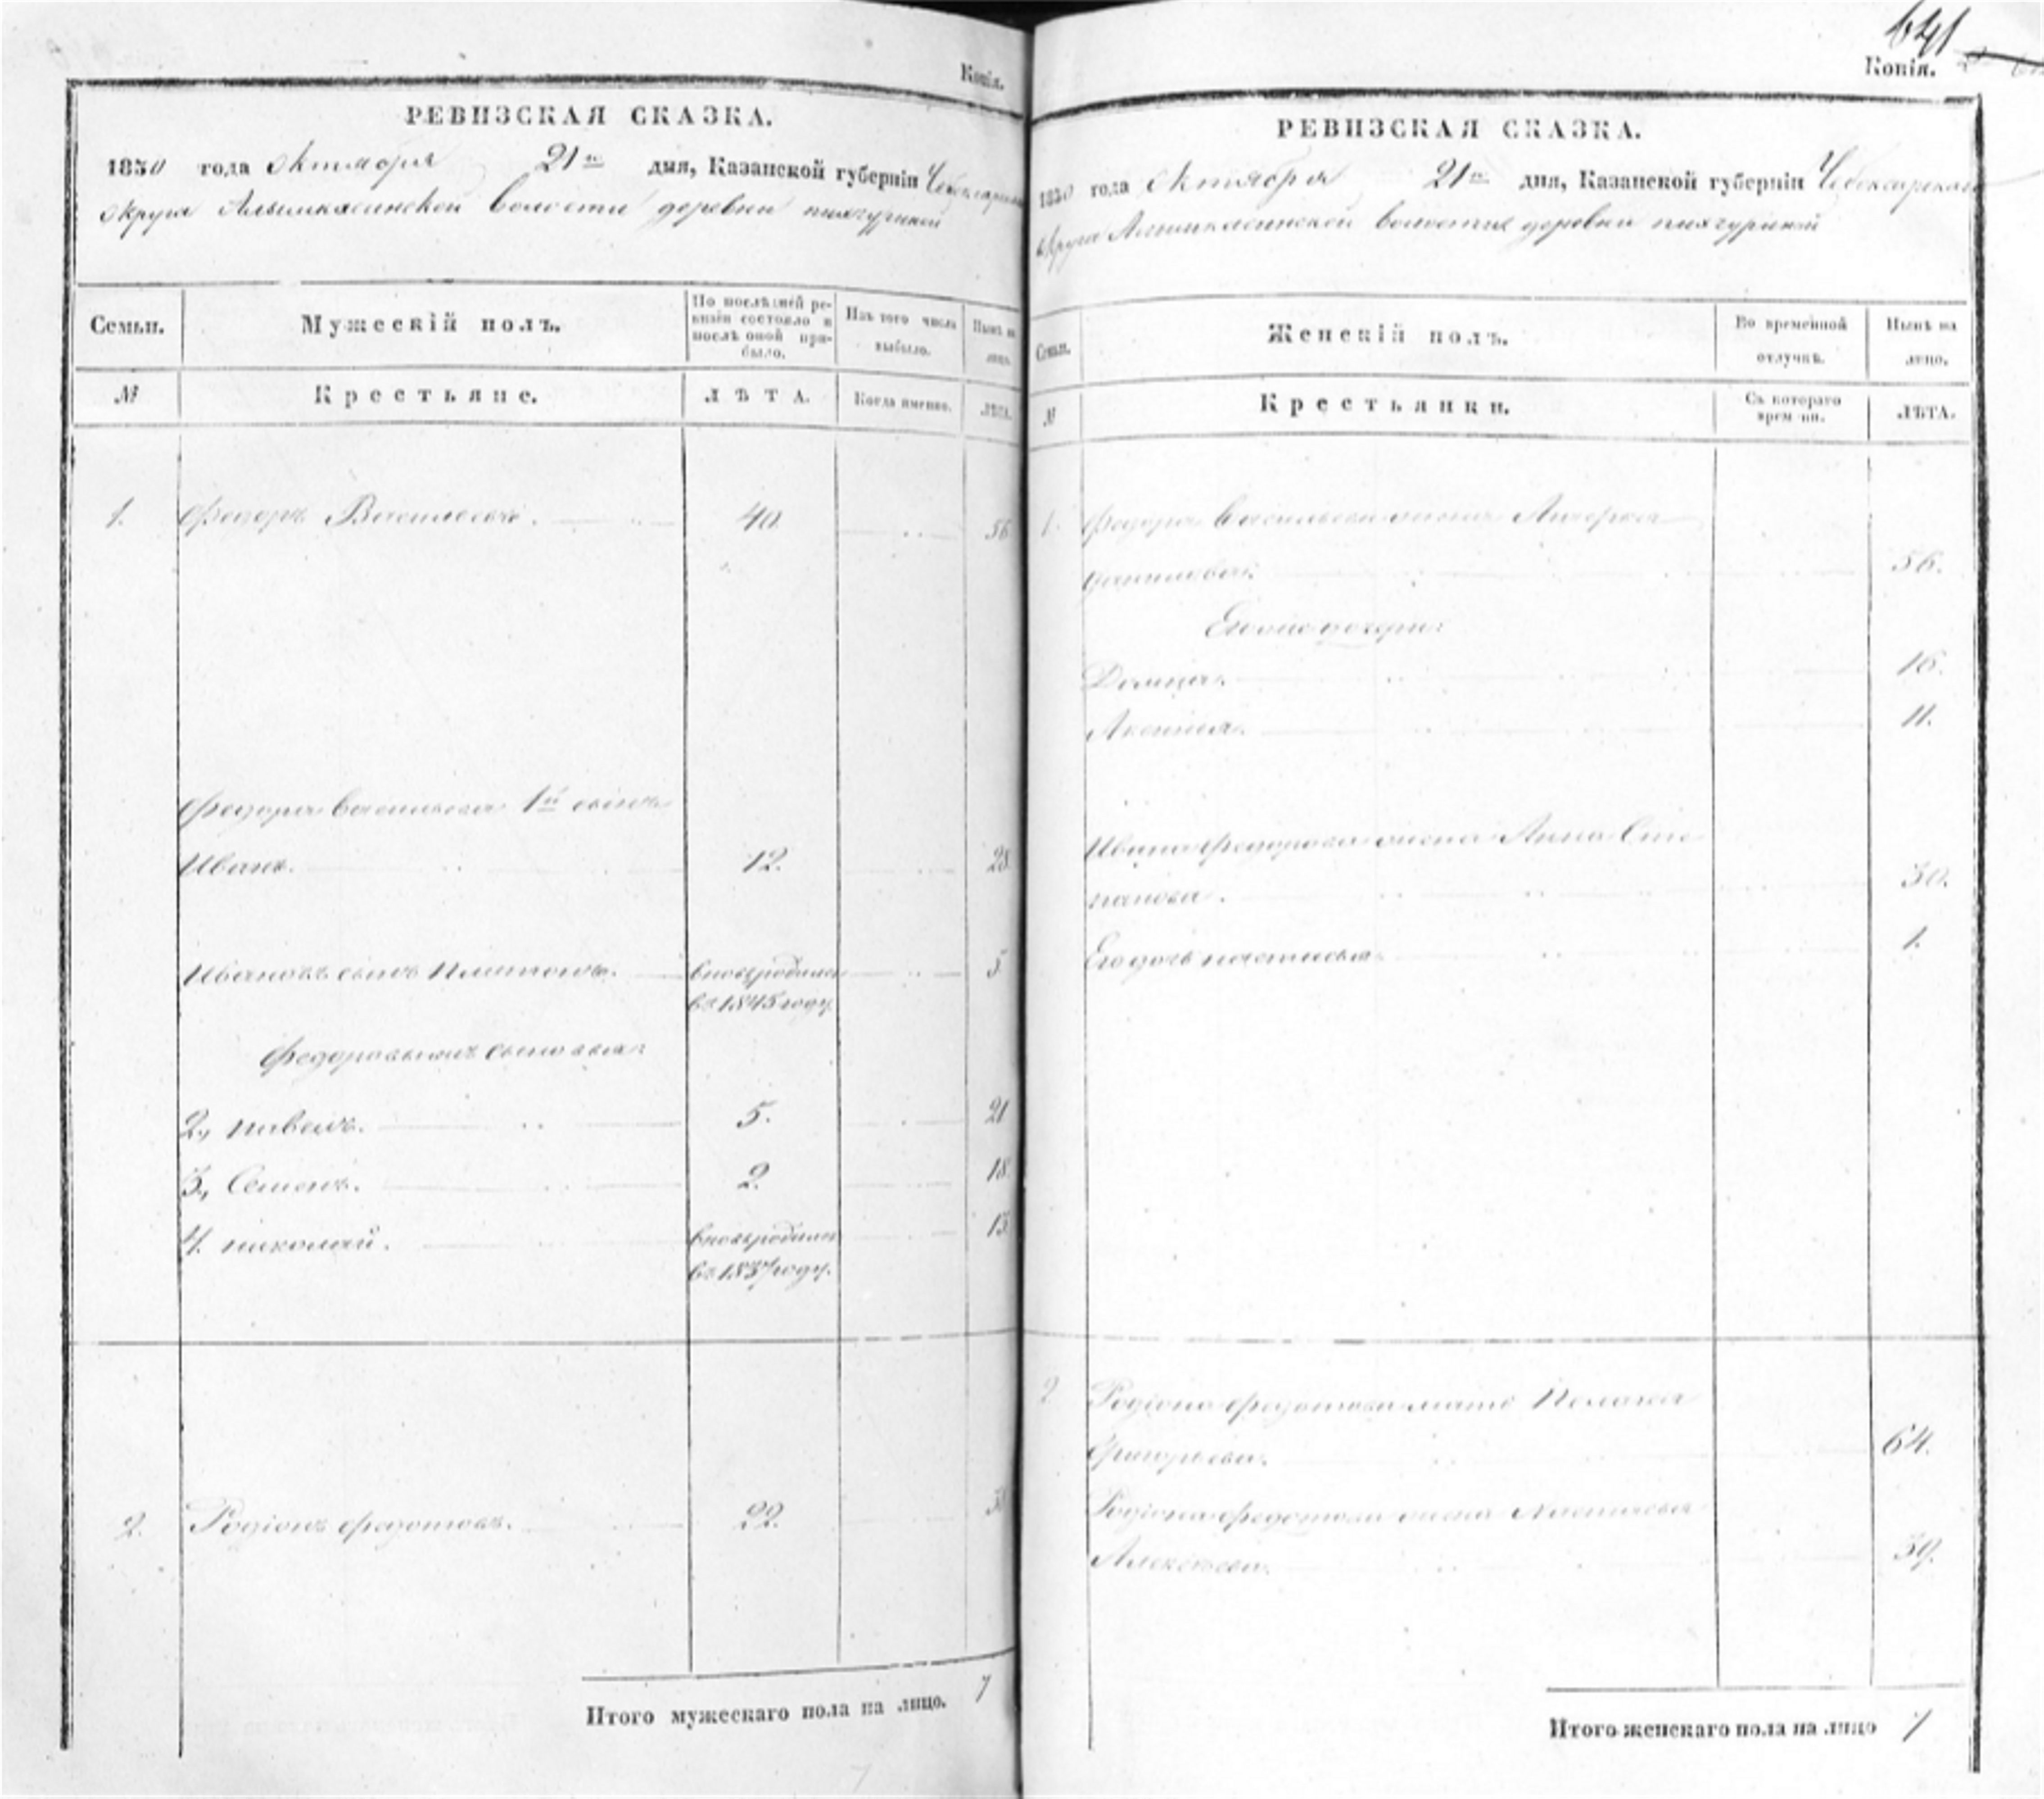 Копія.
РЕВИЗСКАЯ СКАЗКА.
1850 года Октября 21го дня, Казанской губерніи Чебоксарскаго
округа Алымкасинской волости деревни
Семьи. Мужескій полъ. По послѣдней ревизіи состояло и послѣ оной прибыло. Изъ того числа выбыло. Нынѣ на лицо.
№ Крестьяне. ЛѢТА. Когда именно. ЛѢТА.
1. Федоръ Васильевъ. 40. 56
Федора Васильева 1й сынъ
Иванъ. 12. 28
Ивановъ сынъ Платонъ. вновь родился 5
въ 1845 году.
Федоровы сыновья:
2, павелъ. 5. 21
3, Семенъ. 2. 18
4. николай. вновь родился 13
въ 1837 году.
2. Родіонъ Федотовъ. 22. 38
Итого мужескаго пола на лицо. 7
641
Копія.
РЕВИЗСКАЯ СКАЗКА.
1850 года Октября 21го дня, Казанской губерніи Чебоксарскаго
округа Алымкасинской волости деревни
Семьи. Женскій полъ. Во временной отлучкѣ. Нынѣ на лицо.
№ Крестьянки. Съ котораго времени. ЛѢТА.
1. Федора Васильева жена
Данилова. 56.
дочери:
16.
Аксинья. 11.
Ивана Федорова жена Анна Сте
панова. 30.
Его дочь настасья. 1.
2 Родіона Федотова мать Пелагея
Григорьева. 64.
Родіона Федотова жена Настасья
Алексѣева. 39.
Итого женскаго пола на лицо 7